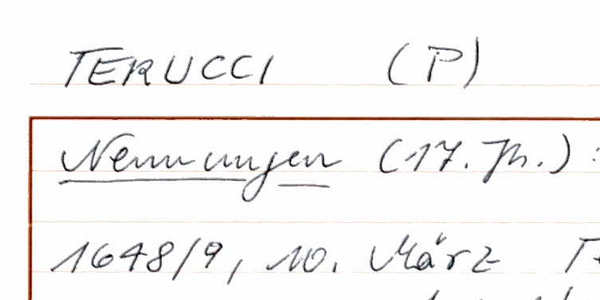 TERUCCI (P)
Nennungen (17. Jh.):
1648/9, 10. März